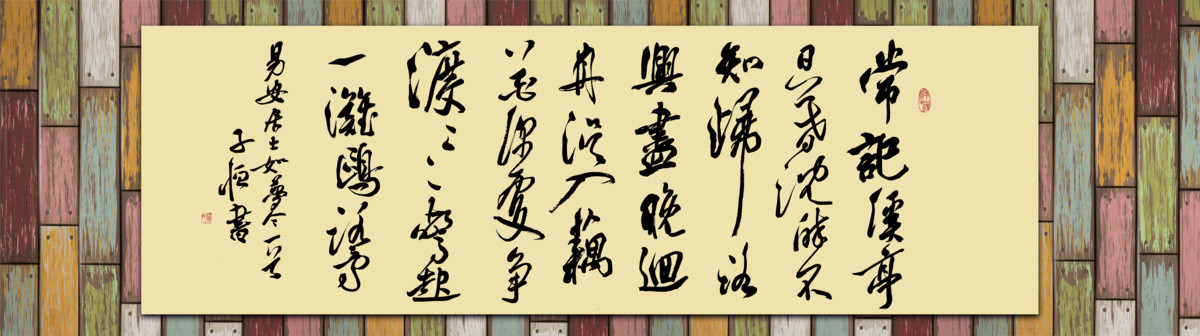 常記溪亭
日暮沈醉不
知歸路
興盡晚迴
舟误入藕
花深處争
渡〻〻驚起
一灘鷗鹭
易安居士如夢令一首
子恒書